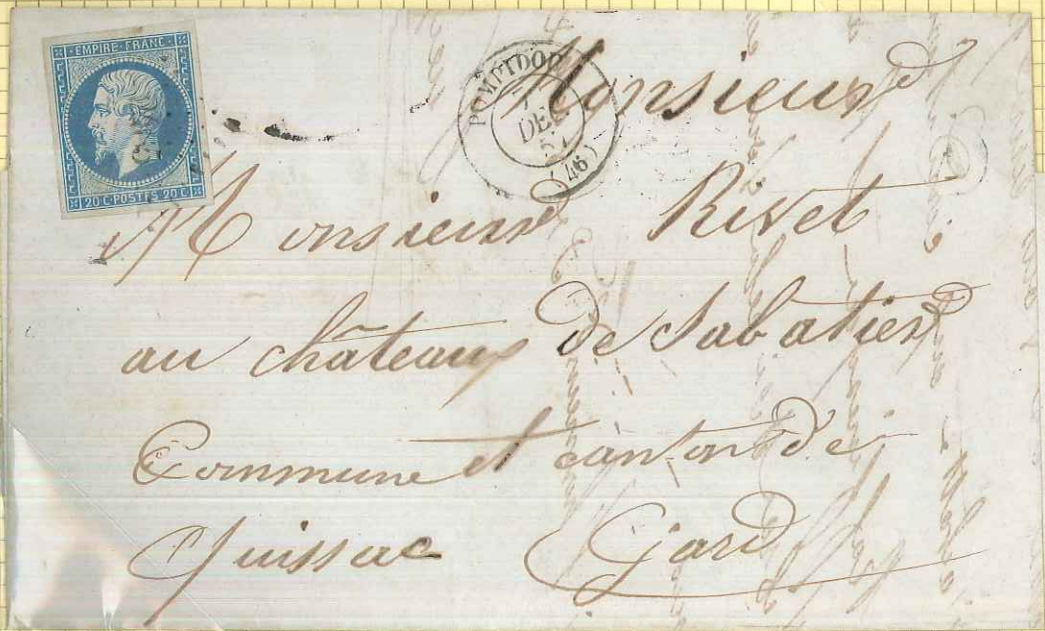 EMPIRE FRANC
20 C POSTES 20 C
POMPIDOU
DEC
(46)
Monsieur
Monsieur Rivet
au châteaux de Sabatier
Commune et canton de
Quissac Gard